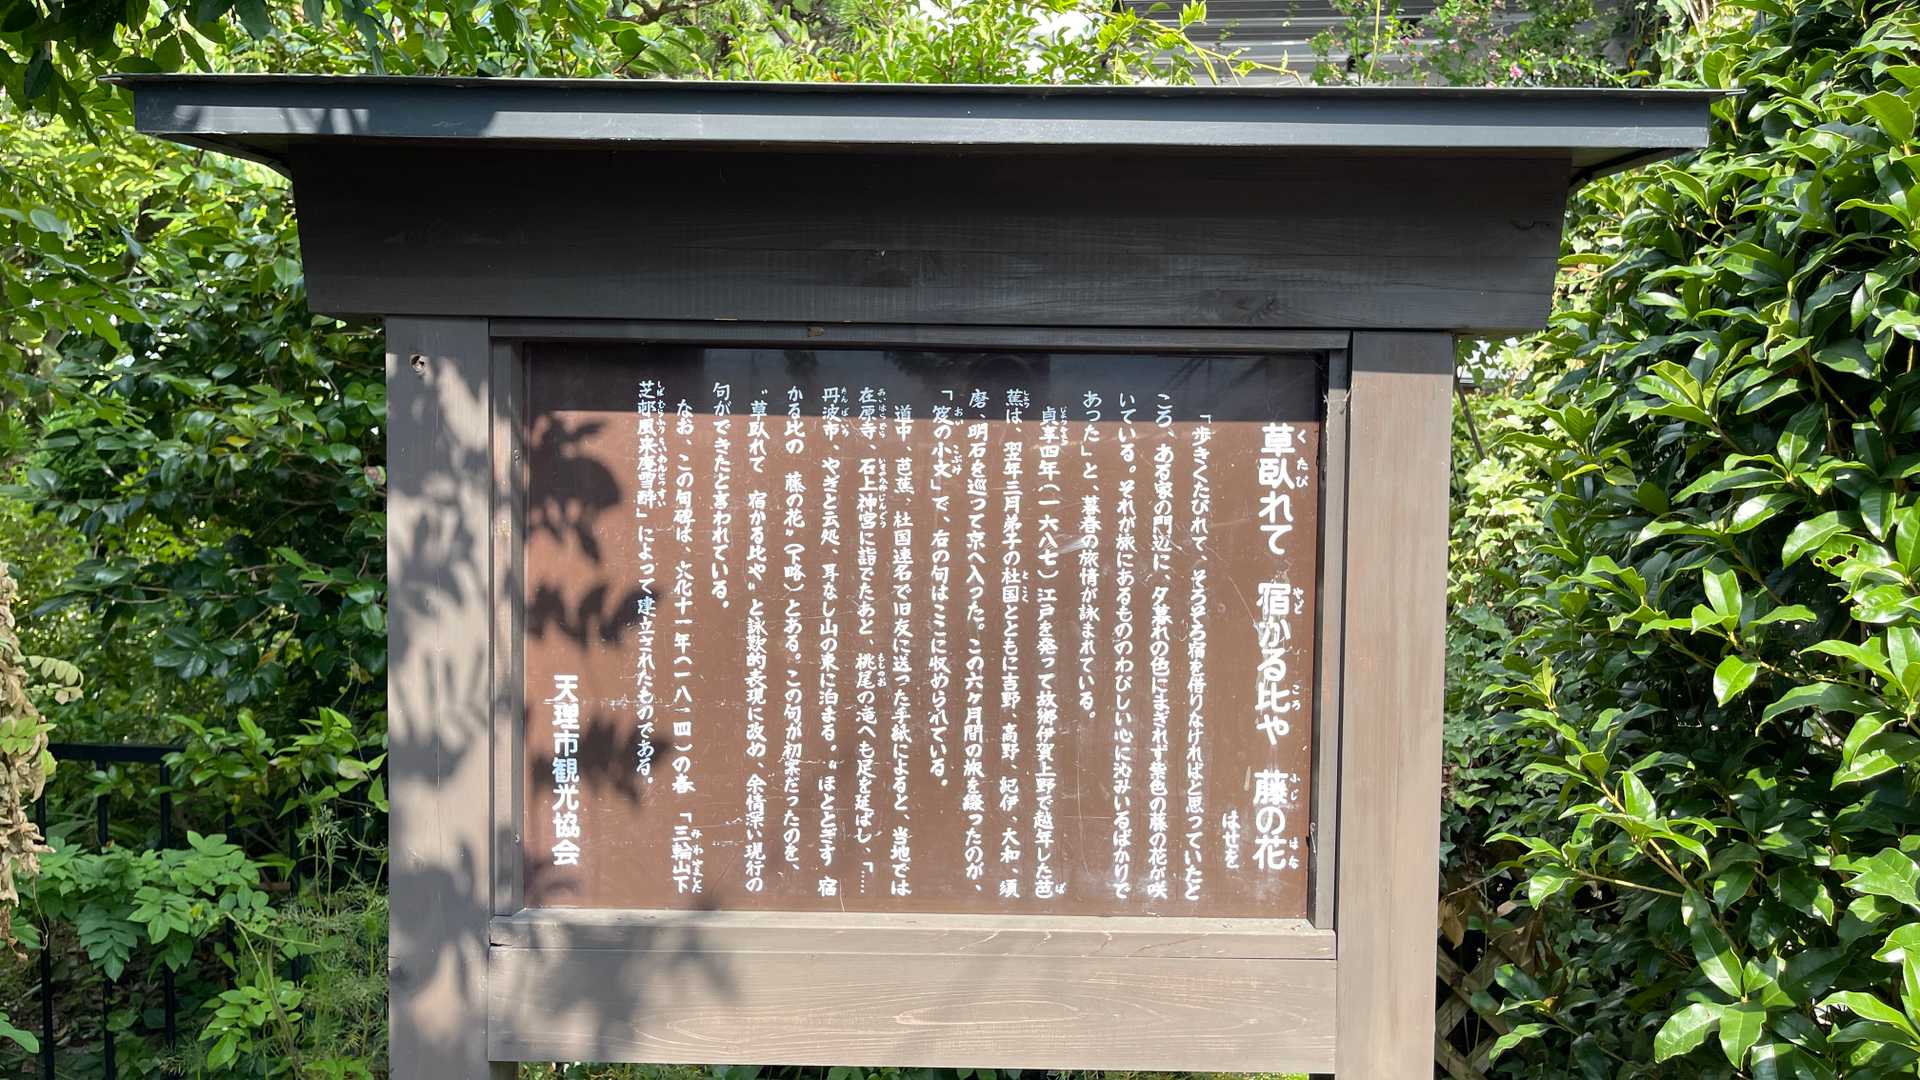 草臥れて　宿かる比や　藤の花
はせを
「歩きくたびれて、そろそろ宿を借りなければと思っていたと
ころ、ある家の門辺に、夕暮れの色にまぎれず紫色の藤の花が咲
いている。それが旅にあるもののわびしい心に沁みいるばかりで
あった」と、暮春の旅情が詠まれている。
貞享四年（一六八七）江戸を発って故郷伊賀上野で越年した芭
蕉は、翌年三月弟子の杜国とともに吉野、高野、紀伊、大和、須
磨、明石を巡って京へ入った。この六ヶ月間の旅を綴ったのが、
「笈の小文」で、右の句はここに収められている。
道中　芭蕉、杜国連名で旧友に送った手紙によると、当地では
在原寺、石上神宮に詣でたあと、桃尾の滝へも足を延ばし、「……
丹波市、やぎと云処、耳なし山の東に泊まる。〝ほととぎす　宿
かる比の　藤の花〟（下略）とある。この句が初案だったのを、
〝草臥れて　宿かる比や〟と詠歎的表現に改め、余情深い現行の
句ができたと言われている。
なお、この句碑は、文化十一年（一八一四）の春　「三輪山下
芝邨風来庵雪酔」によって建立されたものである。
天理市観光協会